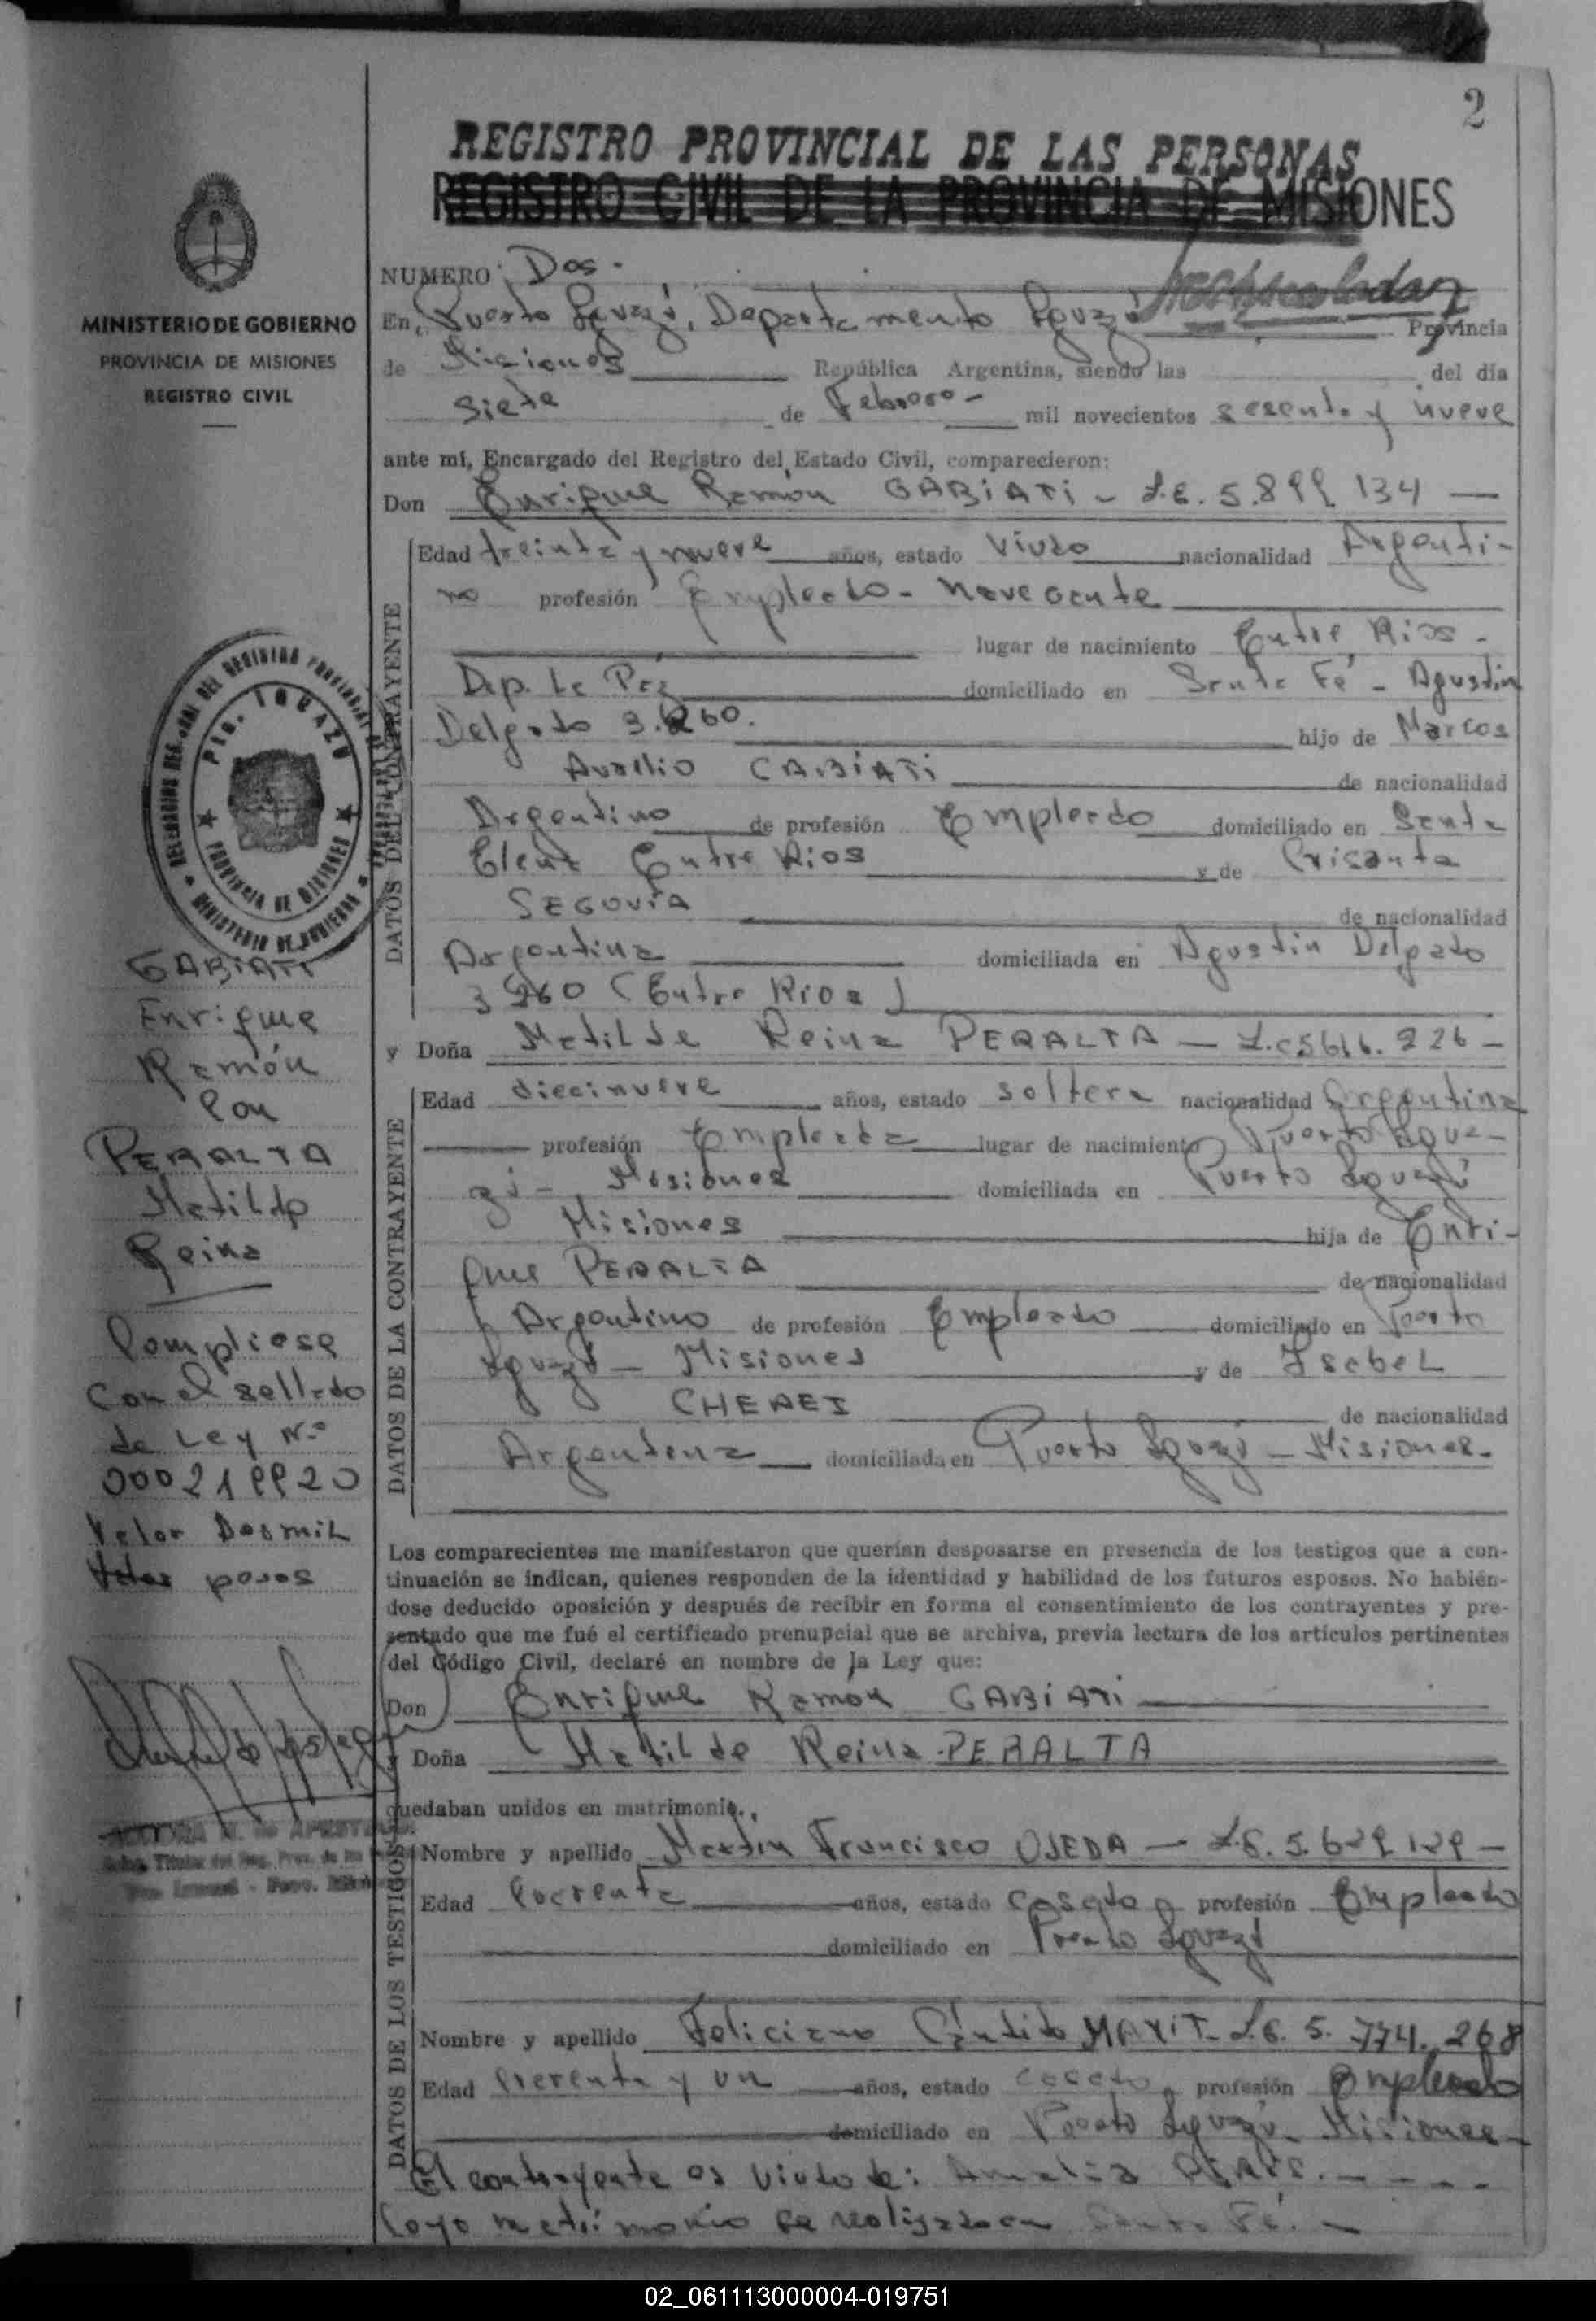 2
REGISTRO PROVINCIAL DE LAS PERSONAS
REGISTRO CIVIL DE LA PROVINCIA DE MISIONES
MINISTERIO DE GOBIERNO
PROVINCIA DE MISIONES
REGISTRO CIVIL
NUMERO Dos.
En, Puerto Iguazú, Departamento Iguazú Provincia
de Misiones República Argentina, siendo las del día
Siete de Febrero - mil novecientos sesenta y nueve
ante mí, Encargado del Registro del Estado Civil, comparecieron:
Don Enrique Ramón GABIATI - L.E. 5.899 134 —
DATOS DEL CONTRAYENTE
Edad treinta y nueve años, estado Viudo nacionalidad Argenti-
no profesión Empleado - navegante
lugar de nacimiento Entre Rios -
Dep. La Paz domiciliado en Santa Fé - Agustin
Delgado 3.260. hijo de Marcos
Auxilio GABIATI de nacionalidad
Argentino de profesión Empleado domiciliado en Santa
Elena Entre Rios y de Crisanta
SEGOVIA de nacionalidad
Argentina domiciliada en Agustin Delgado
3260 (Entre Rios)
y Doña Matilde Reina PERALTA - L.C 5616.226 -
DATOS DE LA CONTRAYENTE
Edad diecinueve años, estado soltera nacionalidad Argentina
profesión Empleada lugar de nacimiento Puerto Igua-
zú - Misiones domiciliada en Puerto Iguazú
Misiones hija de Enri-
que PERALTA de nacionalidad
Argentino de profesión Empleado domiciliado en Puerto
Iguazú - Misiones y de Isabel
de nacionalidad
Argentina domiciliada en Puerto Iguazú - Misiones -
Los comparecientes me manifestaron que querían desposarse en presencia de los testigos que a con-
tinuación se indican, quienes responden de la identidad y habilidad de los futuros esposos. No habién-
dose deducido oposición y después de recibir en forma el consentimiento de los contrayentes y pre-
sentado que me fué el certificado prenupcial que se archiva, previa lectura de los artículos pertinentes
del Código Civil, declaré en nombre de la Ley que:
Don Enrique Ramón GABIATI
y Doña Matilde Reina PERALTA
quedaban unidos en matrimonio.
DATOS DE LOS TESTIGOS
Nombre y apellido Martin Francisco OJEDA - L.E. 5.629 129 -
Edad Cuarenta años, estado casado profesión Empleado
domiciliado en Puerto Iguazú
Nombre y apellido Feliciano Cándido L.E. 5. 774. 268
Edad Cuarenta y un años, estado casado profesión Empleado
domiciliado en Puerto Iguazú - Misiones -
El contrayente es viudo de: Amalia
Cuyo matrimonio se realizado en Santa Fé. -
PTO. IGUAZU
PROVINCIA DE MISIONES
MINISTERIO DE GOBIERNO
GABIATI
Enrique
Ramón
Con
PERALTA
Matilde
Reina
Compliose
Con el sellado
de Ley Nº
000219920
Valor Dosmil
pesos
02_061113000004-019751